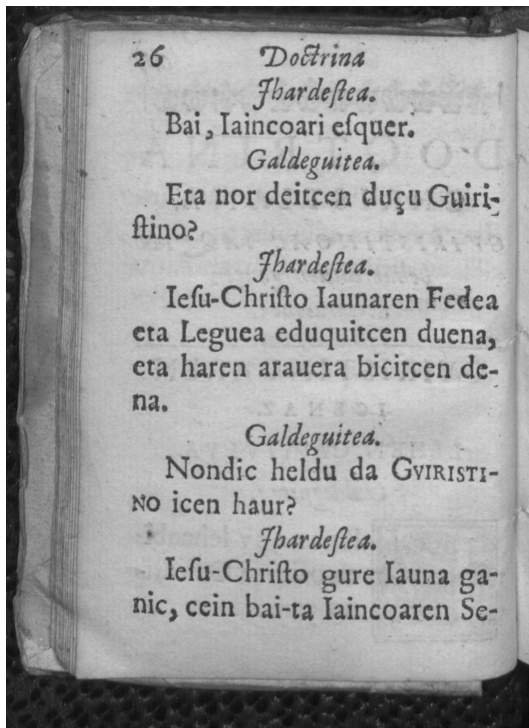 26 Doctrina
Jhardeſtea.
Bai, Iaincoari eſquer.
Galdeguitea.
Eta nor deitcen duçu Guiri-
ſtino?
Jhardeſtea.
Ieſu-Chriſto Iaunaren Fedea
eta Leguea eduquitcen duena,
eta haren arauera bicitcen de-
na.
Galdeguitea.
Nondic heldu da GVIRISTI-
NO icen haur?
Jhardeſtea.
Ieſu-Chriſto gure Iauna ga-
nic, cein bai-ta Iaincoaren Se-